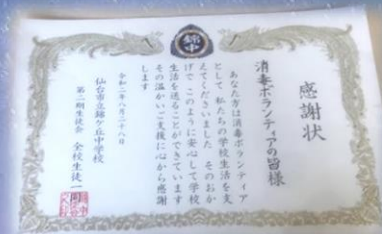 錦中
感謝状
消毒ボランティアの皆様
あなた方は消毒ボランティア
として 私たちの学校生活を支
えてくださいました そのおか
げで このように安心して学校
生活を送ることができています
その温かいご支援に心から感謝
します
令和二年八月二十八日
仙台市立錦ケ丘中学校
第二期生徒会 全校生徒一同